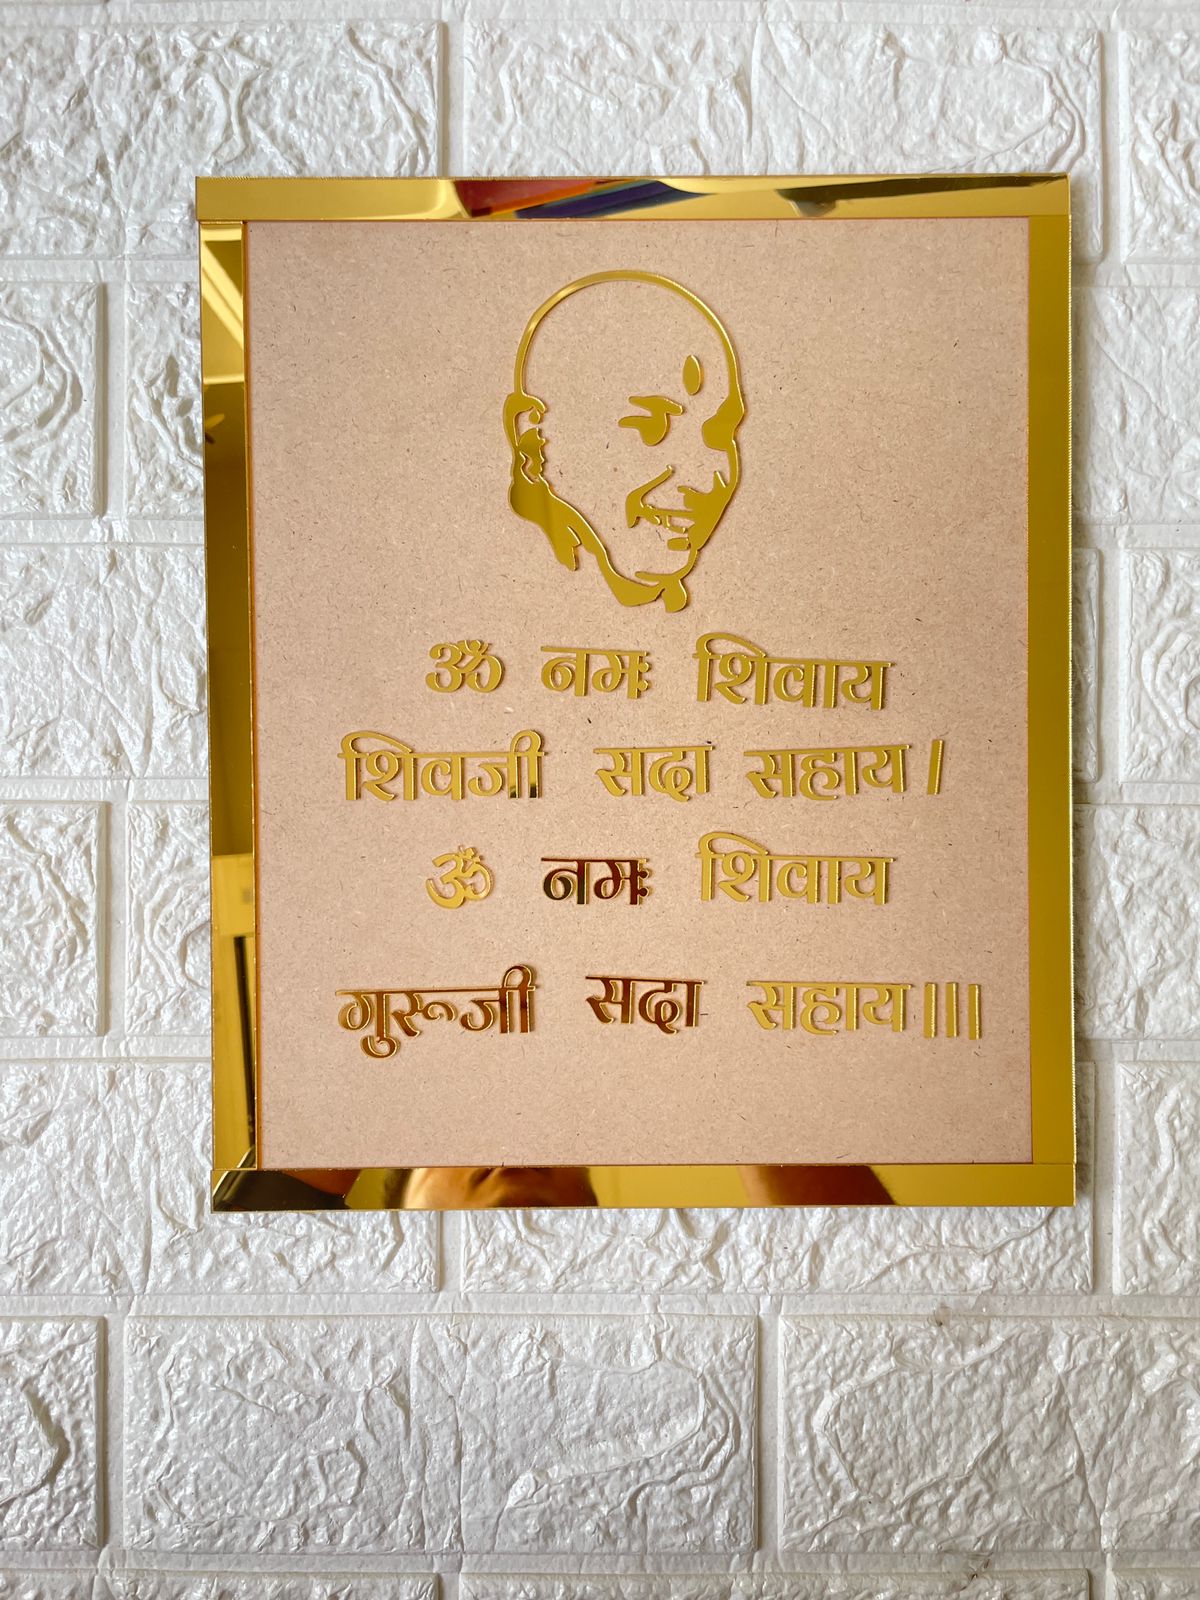 ॐ नमः शिवाय
शिवजी सदा सहाय।
ॐ नमः शिवाय
गुरूजी सदा सहाय।।।